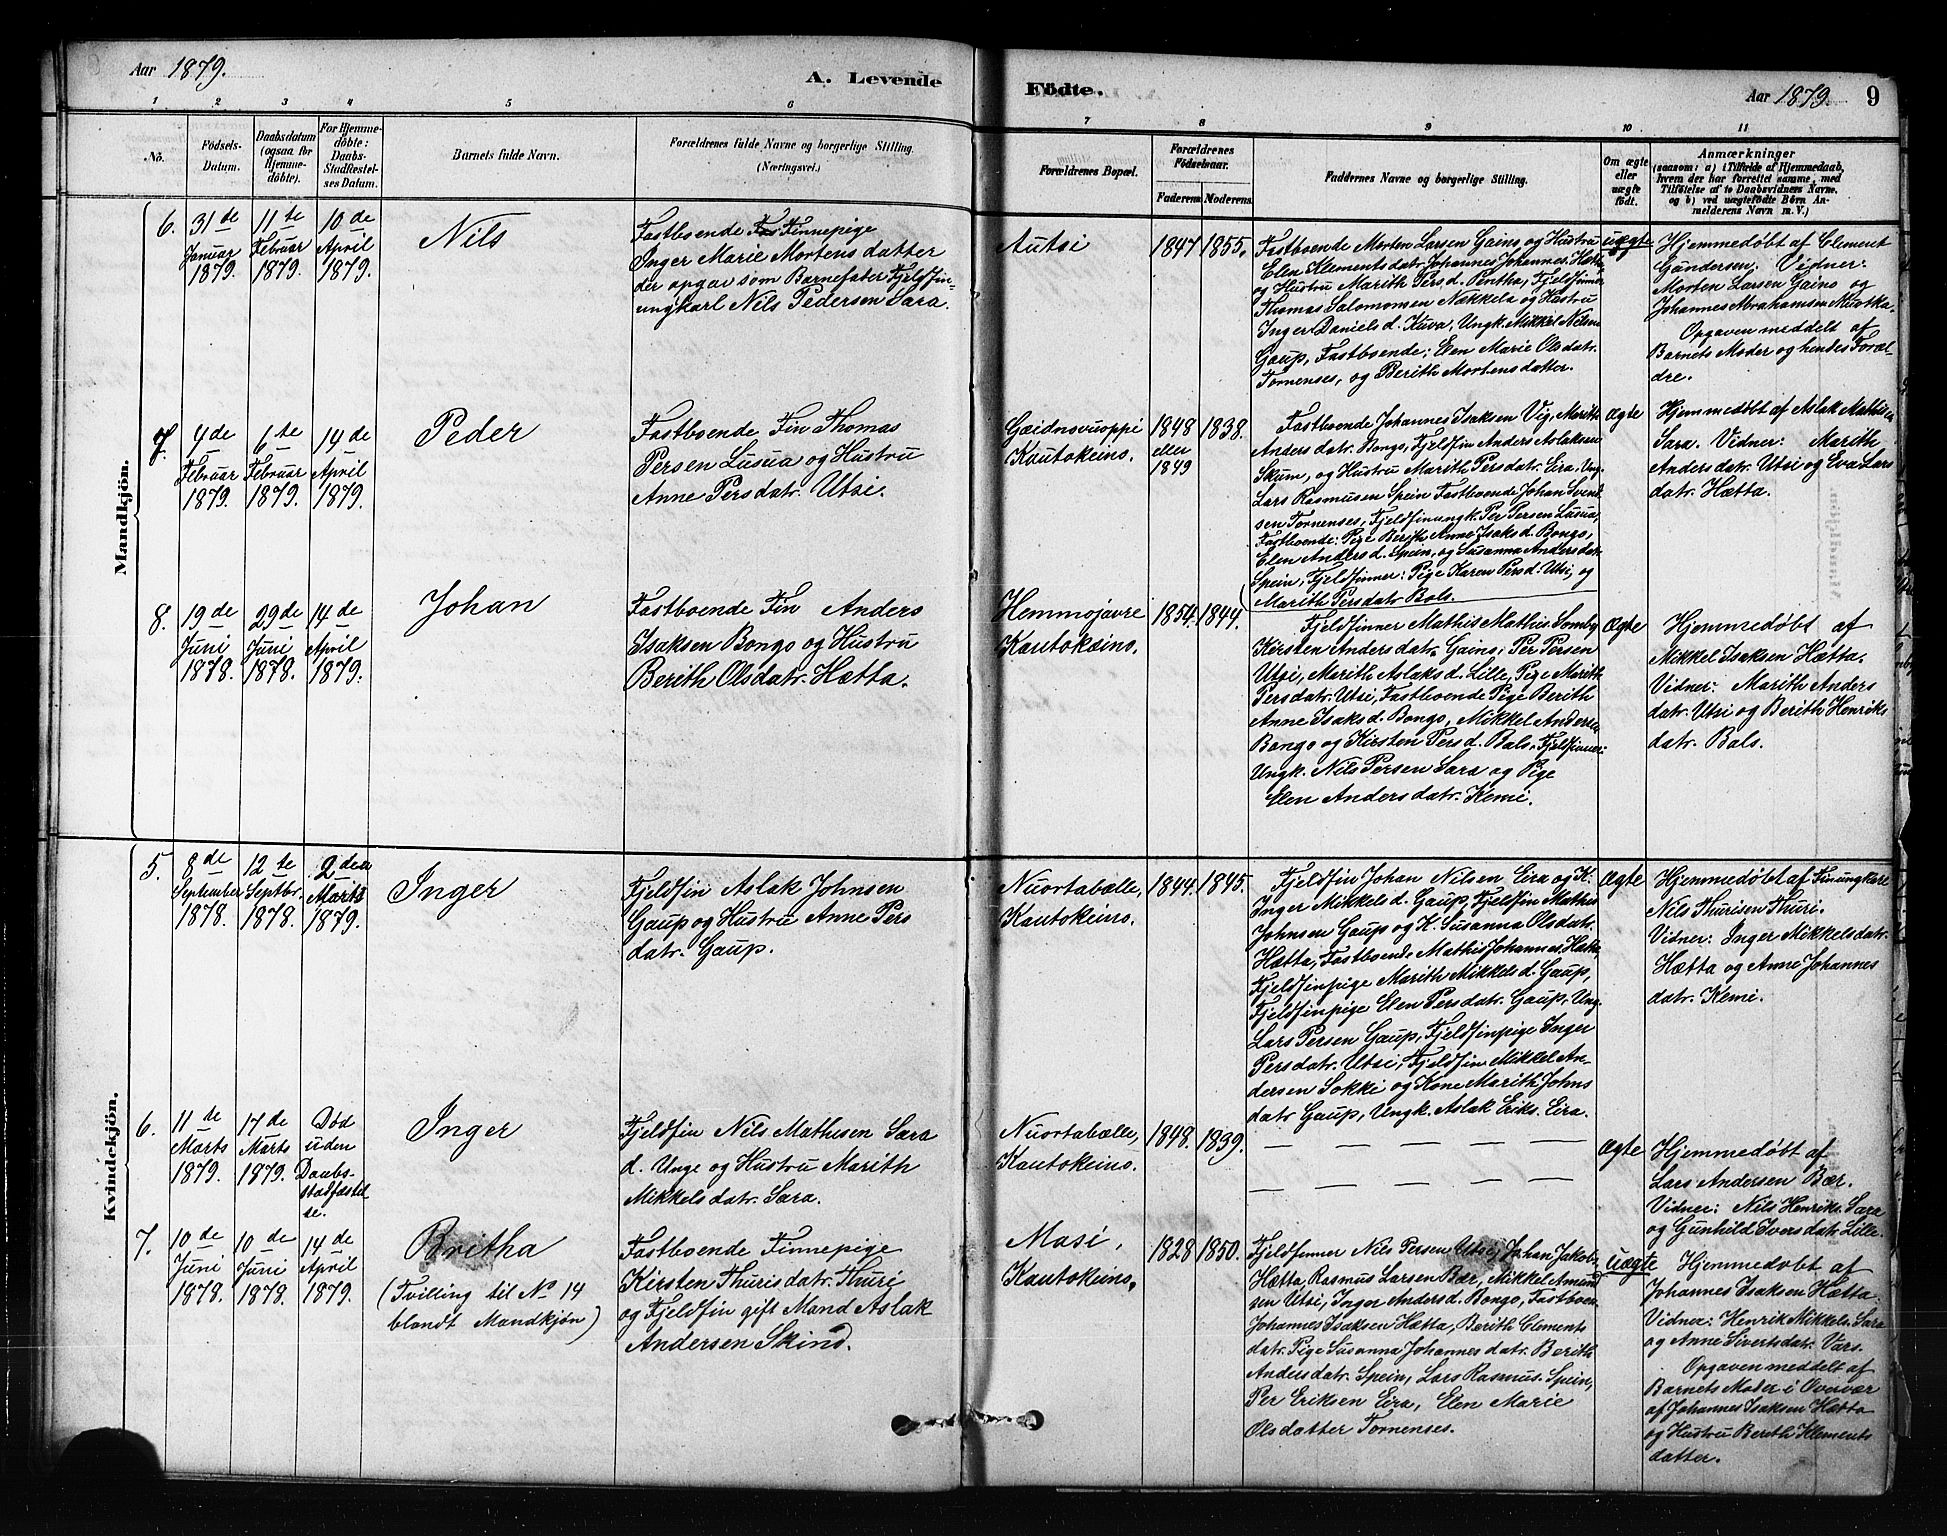 Aar 1879.
A. Levende
Fødte.
Aar 1879. 9
1 2 3 4 5 6 7 8 9 10 11
No.
Fødsels-
Datum.
Daabsdatum
(ogsaa for
Hjemme-
døbte).
For Hjemme-
døbte:
Daabs-
Stadfæstel-
ses Datum.
Barnets fulde Navn.
Forældrenes fulde Navne og borgerlige Stilling.
(Næringsvei.)
Forældrenes Bopæl.
Forældrenes
Fødselsaar.
Faderens Moderens.
Faddernes Navne og borgerlige Stilling.
Om ægte
eller
uægte
født.
Anmærkninger
(saasom: a) i Tilfælde af Hjemmedaab,
hvem der har forrettet samme, med
Tilføielse af to Daabsvidners Navne,
og b) ved uægtefødte Børn An-
melderens Navn m. V.)
Mandkjön.
6.
31te
Januar
1879.
11te
Februar
1879.
10de
April
1879.
Nils
Fastboende Finnepige
Inger Marie Mortensdatter
der opgav som Barnefater Fjeldfin-
ungkarl Nils Pedersen Sara.
Autsi
1847 1855.
Fastboende Morten Larsen Gaino og Hustru
Elen Klementsdatr. Johannes Johannes. Hætta
og Hustru Marith Pers d. Pentha, Fjeldfinner
Thomas Salomonsen Nækkela og Hustru
Inger Daniels d. Kuva, Ungk. Mikkel Nilsen
Gaup, Fastboende; Elen Marie Olsdatr.
Tornenses, og Berith Mortensdatter.
uægte
Hjemmedøbt af Clement
Gundersen. Vidner:
Morten Larsen Gaino og
Johannes Abrahamsen Muotka.
Opgaven meddelt af
Barnets Moder og hendes Foræl-
dre.
7.
4de
Februar
1879.
6te
Februar
1879.
14de
April
1879.
Peder
Fastboende Fin Thomas
Persen Lusua og Hustru
Anne Persdatr. Utsi.
Gæidnovuoppi
Kautokeino.
1848
eller
1849
1838.
Fastboende Johannes Isaksen Vig, Marith
Andersdatr. Bongo, Fjeldfin Anders Aslaksen
Skum, og Hustru Marith Persdatr. Eira, Ung.
Lars Rasmusen Spein Fastboende Johan Svend-
sen Tornenses, Fjeldfinungk. Per Persen Lusua,
Fastboende: Pige Berith Anne Isaks d. Bongo,
Elen Anders d. Spein, og Susanna Andersdatr.
Spein, Fjeldfinner: Pige Karen Pers d. Utsi, og
Marith Persdatr. Bals.
Ægte
Hjemmedøbt af Aslak Mathisen
Sara. Vidner: Marith
Andersdatr. Utsi og Eva Lars
datr. Hætta.
8.
19de
Juni
1878.
29de
Juni
1878.
14de
April
1879.
Johan
Fastboende Fin Anders
Isaksen Bongo og Hustru
Berith Olsdatr. Hætta.
Hemmojavre
Kautokeino.
1854. 1844.
Fjeldfinner Mathis Mathis Somby
Kirsten Andersdatr. Gaino, Per Persen
Utsi, Marith Aslaks d. Lille, Pige Marith
Persdatr. Utsi, Fastboende Pige Berith
Anne Isaks d. Bongo, Mikkel Andersen
Bongo og Kirsten Pers d. Bals, Fjeldfinner:
Ungk. Nils Persen Sara og Pige
Elen Andersdatr. Kemi.
Ægte
Hjemmedøbt af
Mikkel Isaksen Hætta.
Vidner: Marith Anders
datr. Utsi og Berith Henriks
datr. Bals.
Kvindekjön.
5.
8de
September
1878.
12te
Septbr.
1878.
2den
Marts
1879.
Inger
Fjeldfin Aslak Johnsen
Gaup og Hustru Anne Pers
datr. Gaup.
Nuortabælle,
Kautokeino.
1844. 1845.
Fjeldfin Johan Nilsen Eira og K.
Inger Mikkels d. Gaup, Fjeldfin Mathis
Johnsen Gaup og K. Susanna Olsdatr.
Hætta, Fastboende Mathis Johannes. Hætta,
Fjeldfinpige Marith Mikkels d. Gaup,
Fjeldfinpige Elen Persdatr. Gaup, Ung.
Lars Persen Gaup, Fjeldfinpige Inger
Persdatr. Utsi, Fjeldfin Mikkel An-
dersen Sokki og Kone Marith Johns
datr. Gaup, Ungk. Aslak Eriks. Eira.
Ægte
Hjemmedøbt af Finungkarl
Nils Thurisen Thuri.
Vidner: Inger Mikkelsdatr.
Hætta og Anne Johannes
datr. Kemi.
6.
11de
Marts
1879.
17de
Marts
1879.
Død
uden
Daabs-
stadfæstel-
se.
Inger
Fjeldfin Nils Mathisen Sara
d. Unge og Hustru Marith
Mikkelsdatr. Sara.
Nuortabælle,
Kautokeino.
1848. 1839.
Ægte
Hjemmedøbt af
Lars Andersen Bær.
Vidner: Nils Henriks. Sara
og Gunhild Iversdatr. Lille.
7.
10de
Juni
1878.
10de
Juni
1878.
14de
April
1879.
Britha
(Tvilling til No 14
blandt Mandkjøn)
Fastboende Finnepige
Kirsten Thurisdatr. Thuri
og Fjeldfin gift Mand Aslak
Andersen Skind.
Masi,
Kautokeino.
1828 1850.
Fjeldfinner Nils Persen Utsi, Johan Jakobs.
Hætta, Rasmus Larsen Bær, Mikkel Amund
sen Utsi, Inger Anders d. Bongo, Fastboen.
Johannes Isaksen Hætta, Berith Clements
datr. Pige Susanna Johannesdatr. Berith
Andersdatr. Spein, Lars Rasmus. Spein,
Per Eriksen Eira, Elen Marie
Olsdatter Tornenses.
uægte
Hjemmedøbt af
Johannes Isaksen Hætta.
Vidner: Henrik Mikkels. Sara
og Anne Sivertsdatr. Vars.
Opgaven meddelt af
Barnets Moder i Overvær
af Johannes Isaksen Hætta
og Hustru Berith Klements
datter.